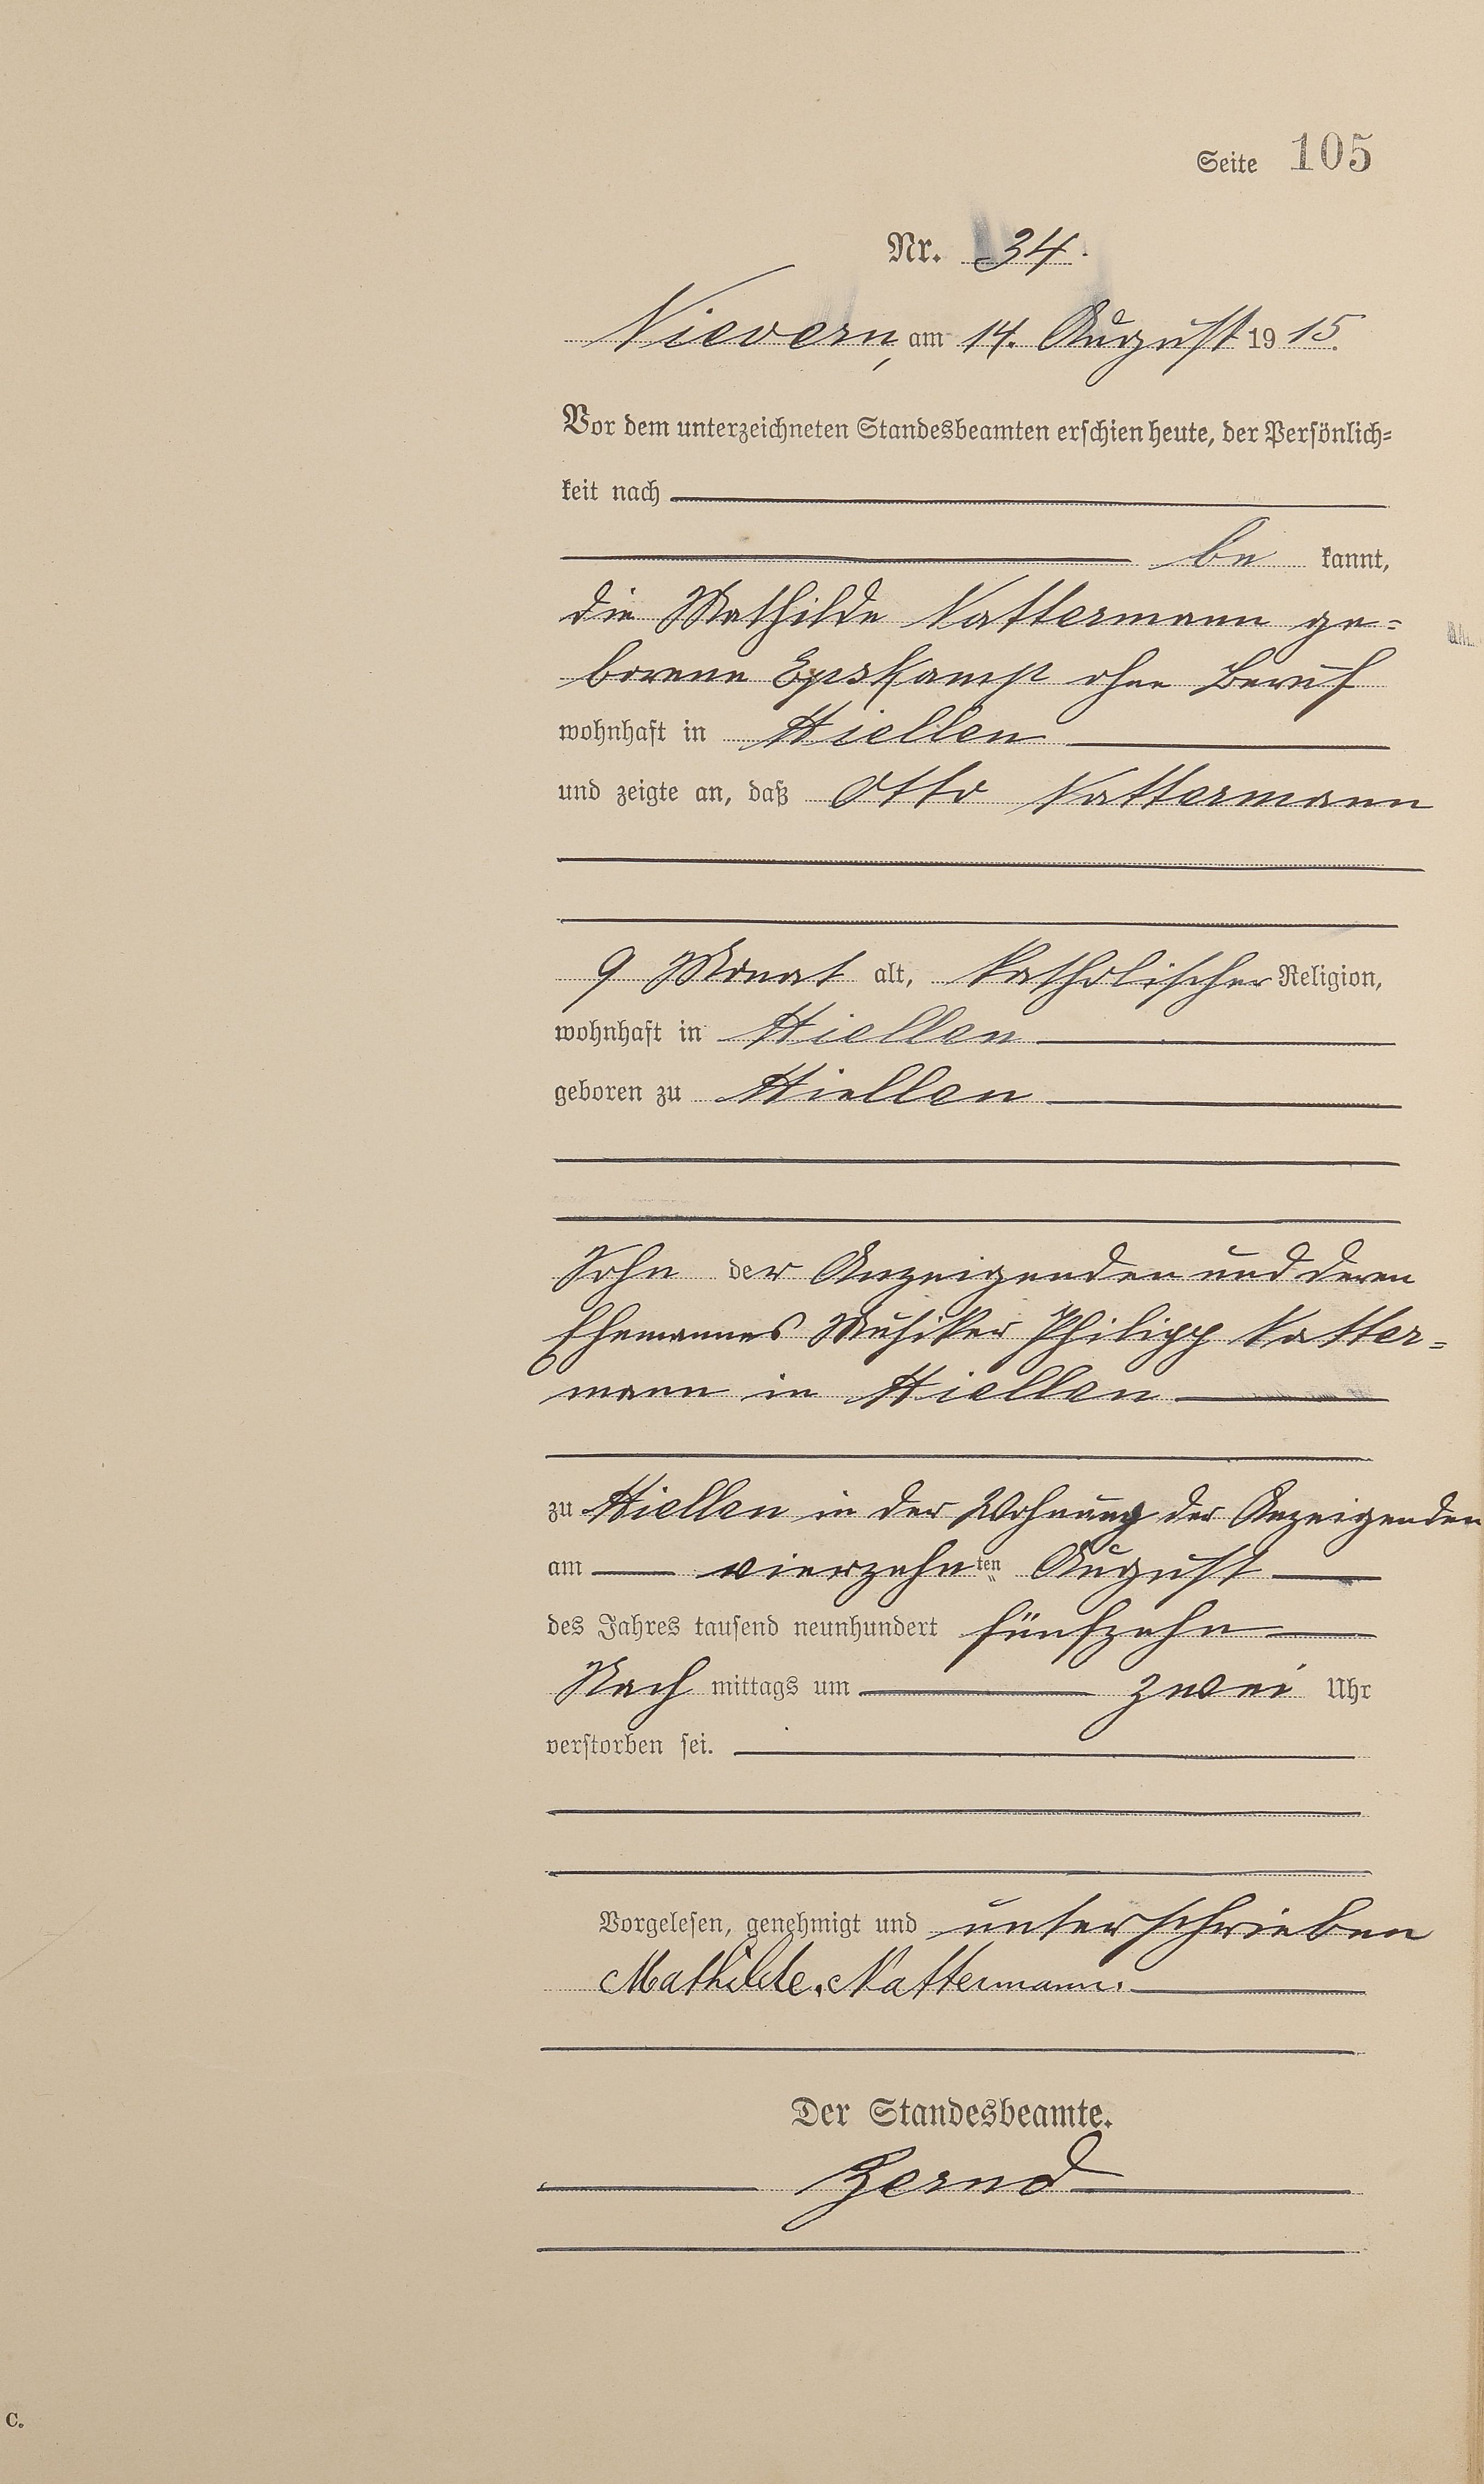 Seite 105
Nr. 34.
Nievern, am 14. August 1915.
Vor dem unterzeichneten Standesbeamten erschien heute, der Persönlich=
keit nach
be kannt,
die Mathilde Nattermann ge=
borene Epskamp ohne Beruf
wohnhaft in Miellen
und zeigte an, daß Otto Nattermann
9 Monat alt, katholischer Religion,
wohnhaft in Miellen
geboren zu Miellen
Sohn der Anzeigenden und deren
Ehemannes Musiker Philipp Natter=
mann in Miellen
zu Miellen in der Wohnung der Anzeigenden
am vierzehnten August
des Jahres tausend neunhundert fünfzehn
Nach mittags um zwei Uhr
verstorben sei.
Vorgelesen, genehmigt und unterschrieben
Mathilde. Nattermann.
Der Standesbeamte.
C.